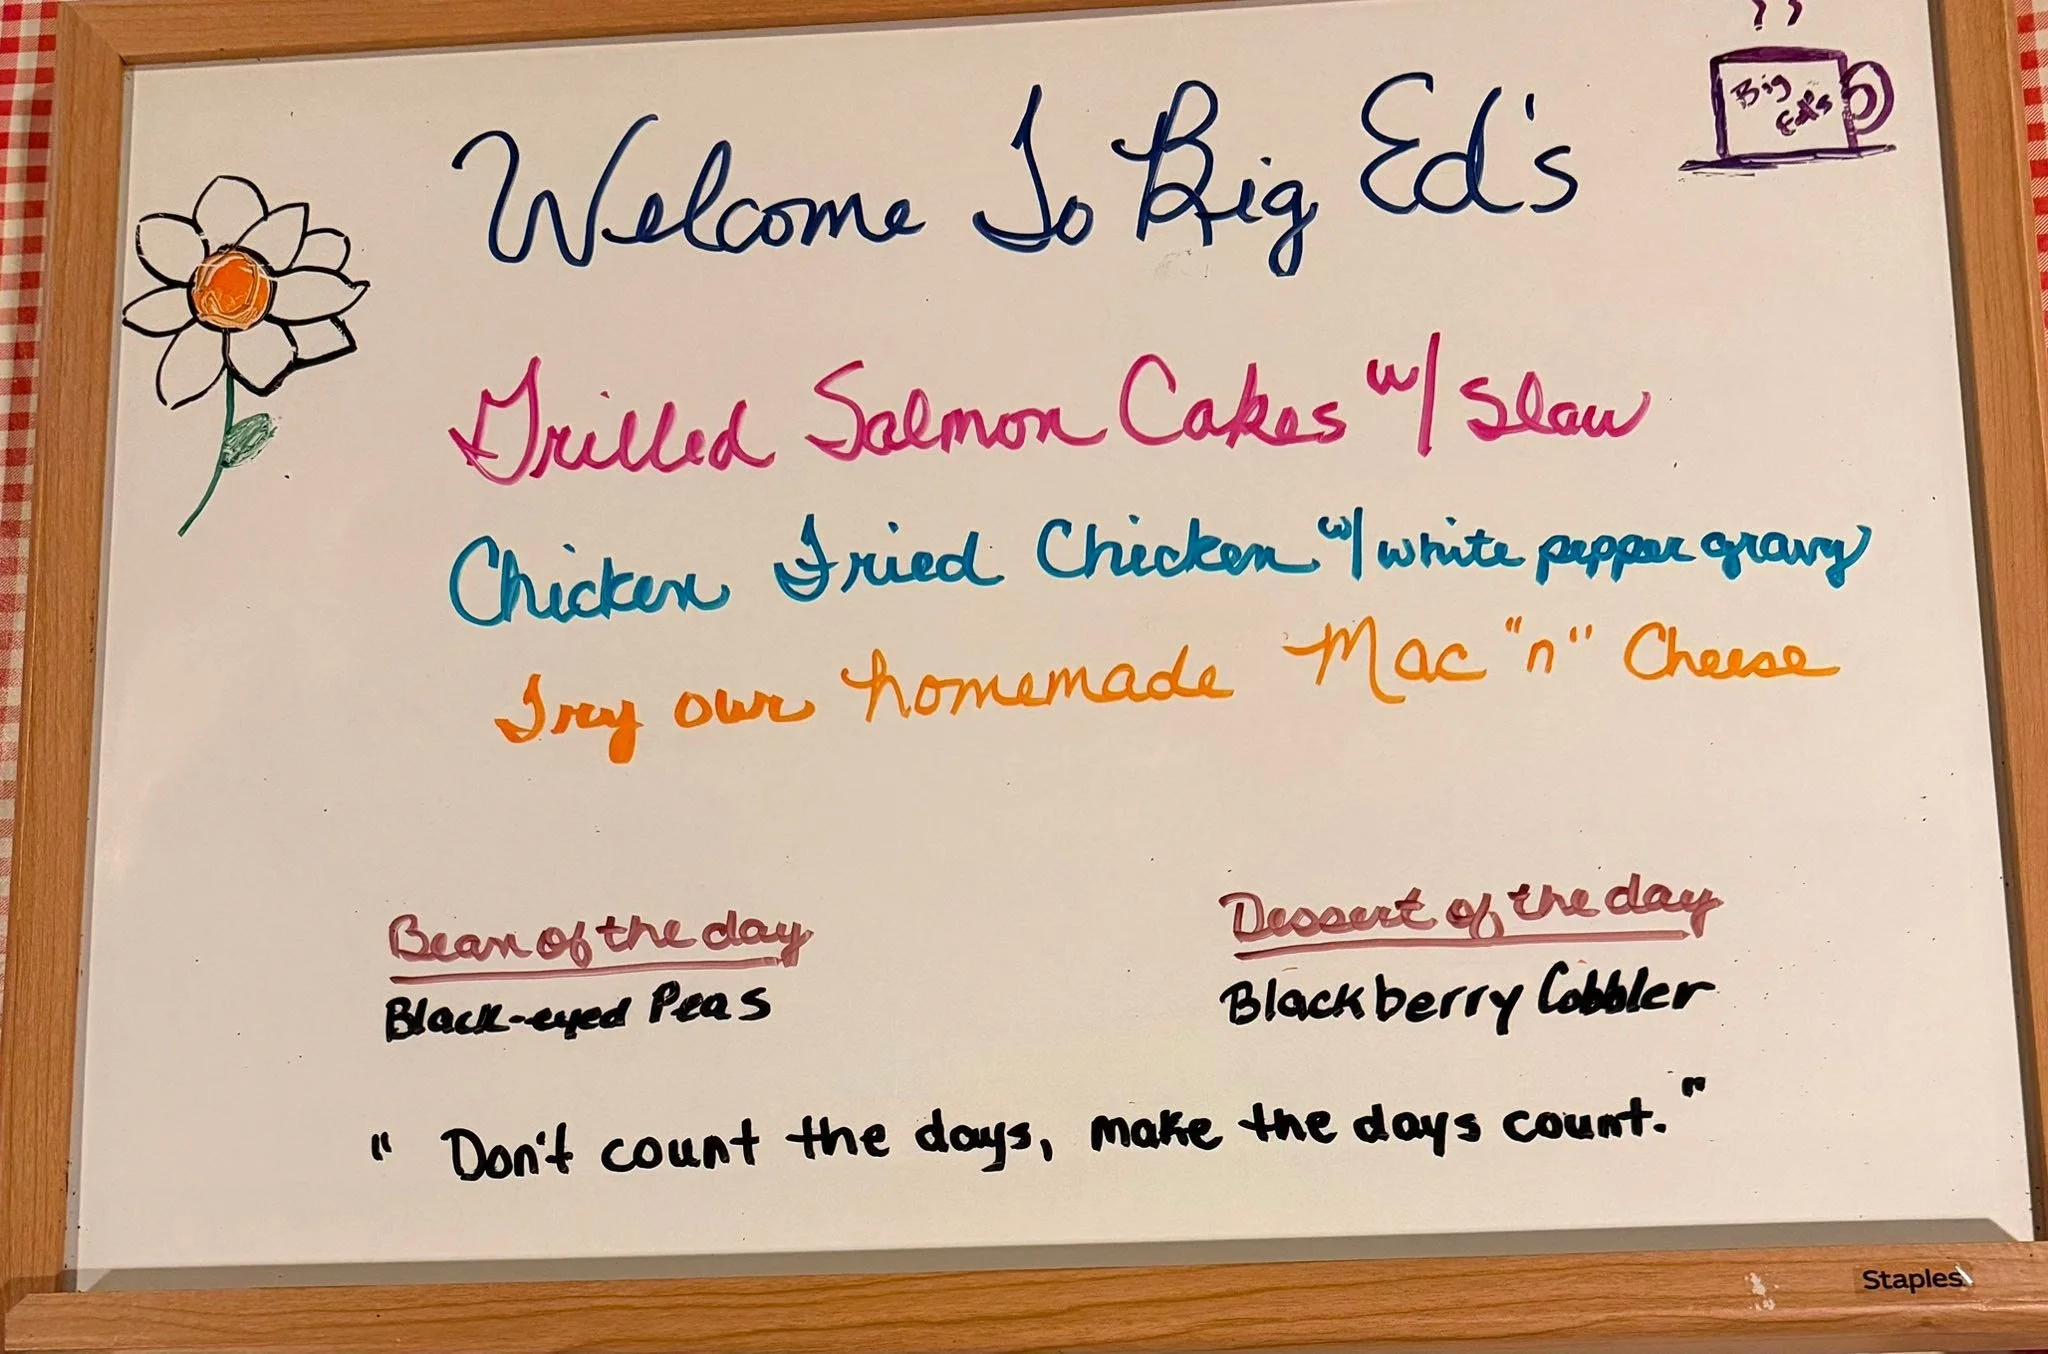 Big
Ed's
Welcome To Big Ed's
Grilled Salmon Cakes w/ Slaw
Chicken Fried Chicken w/ white pepper gravy
Try our homemade Mac "n" Cheese
Bean of the day
Black-eyed Peas
Dessert of the day
Blackberry Cobbler
" Don't count the days, make the days count."
Staples